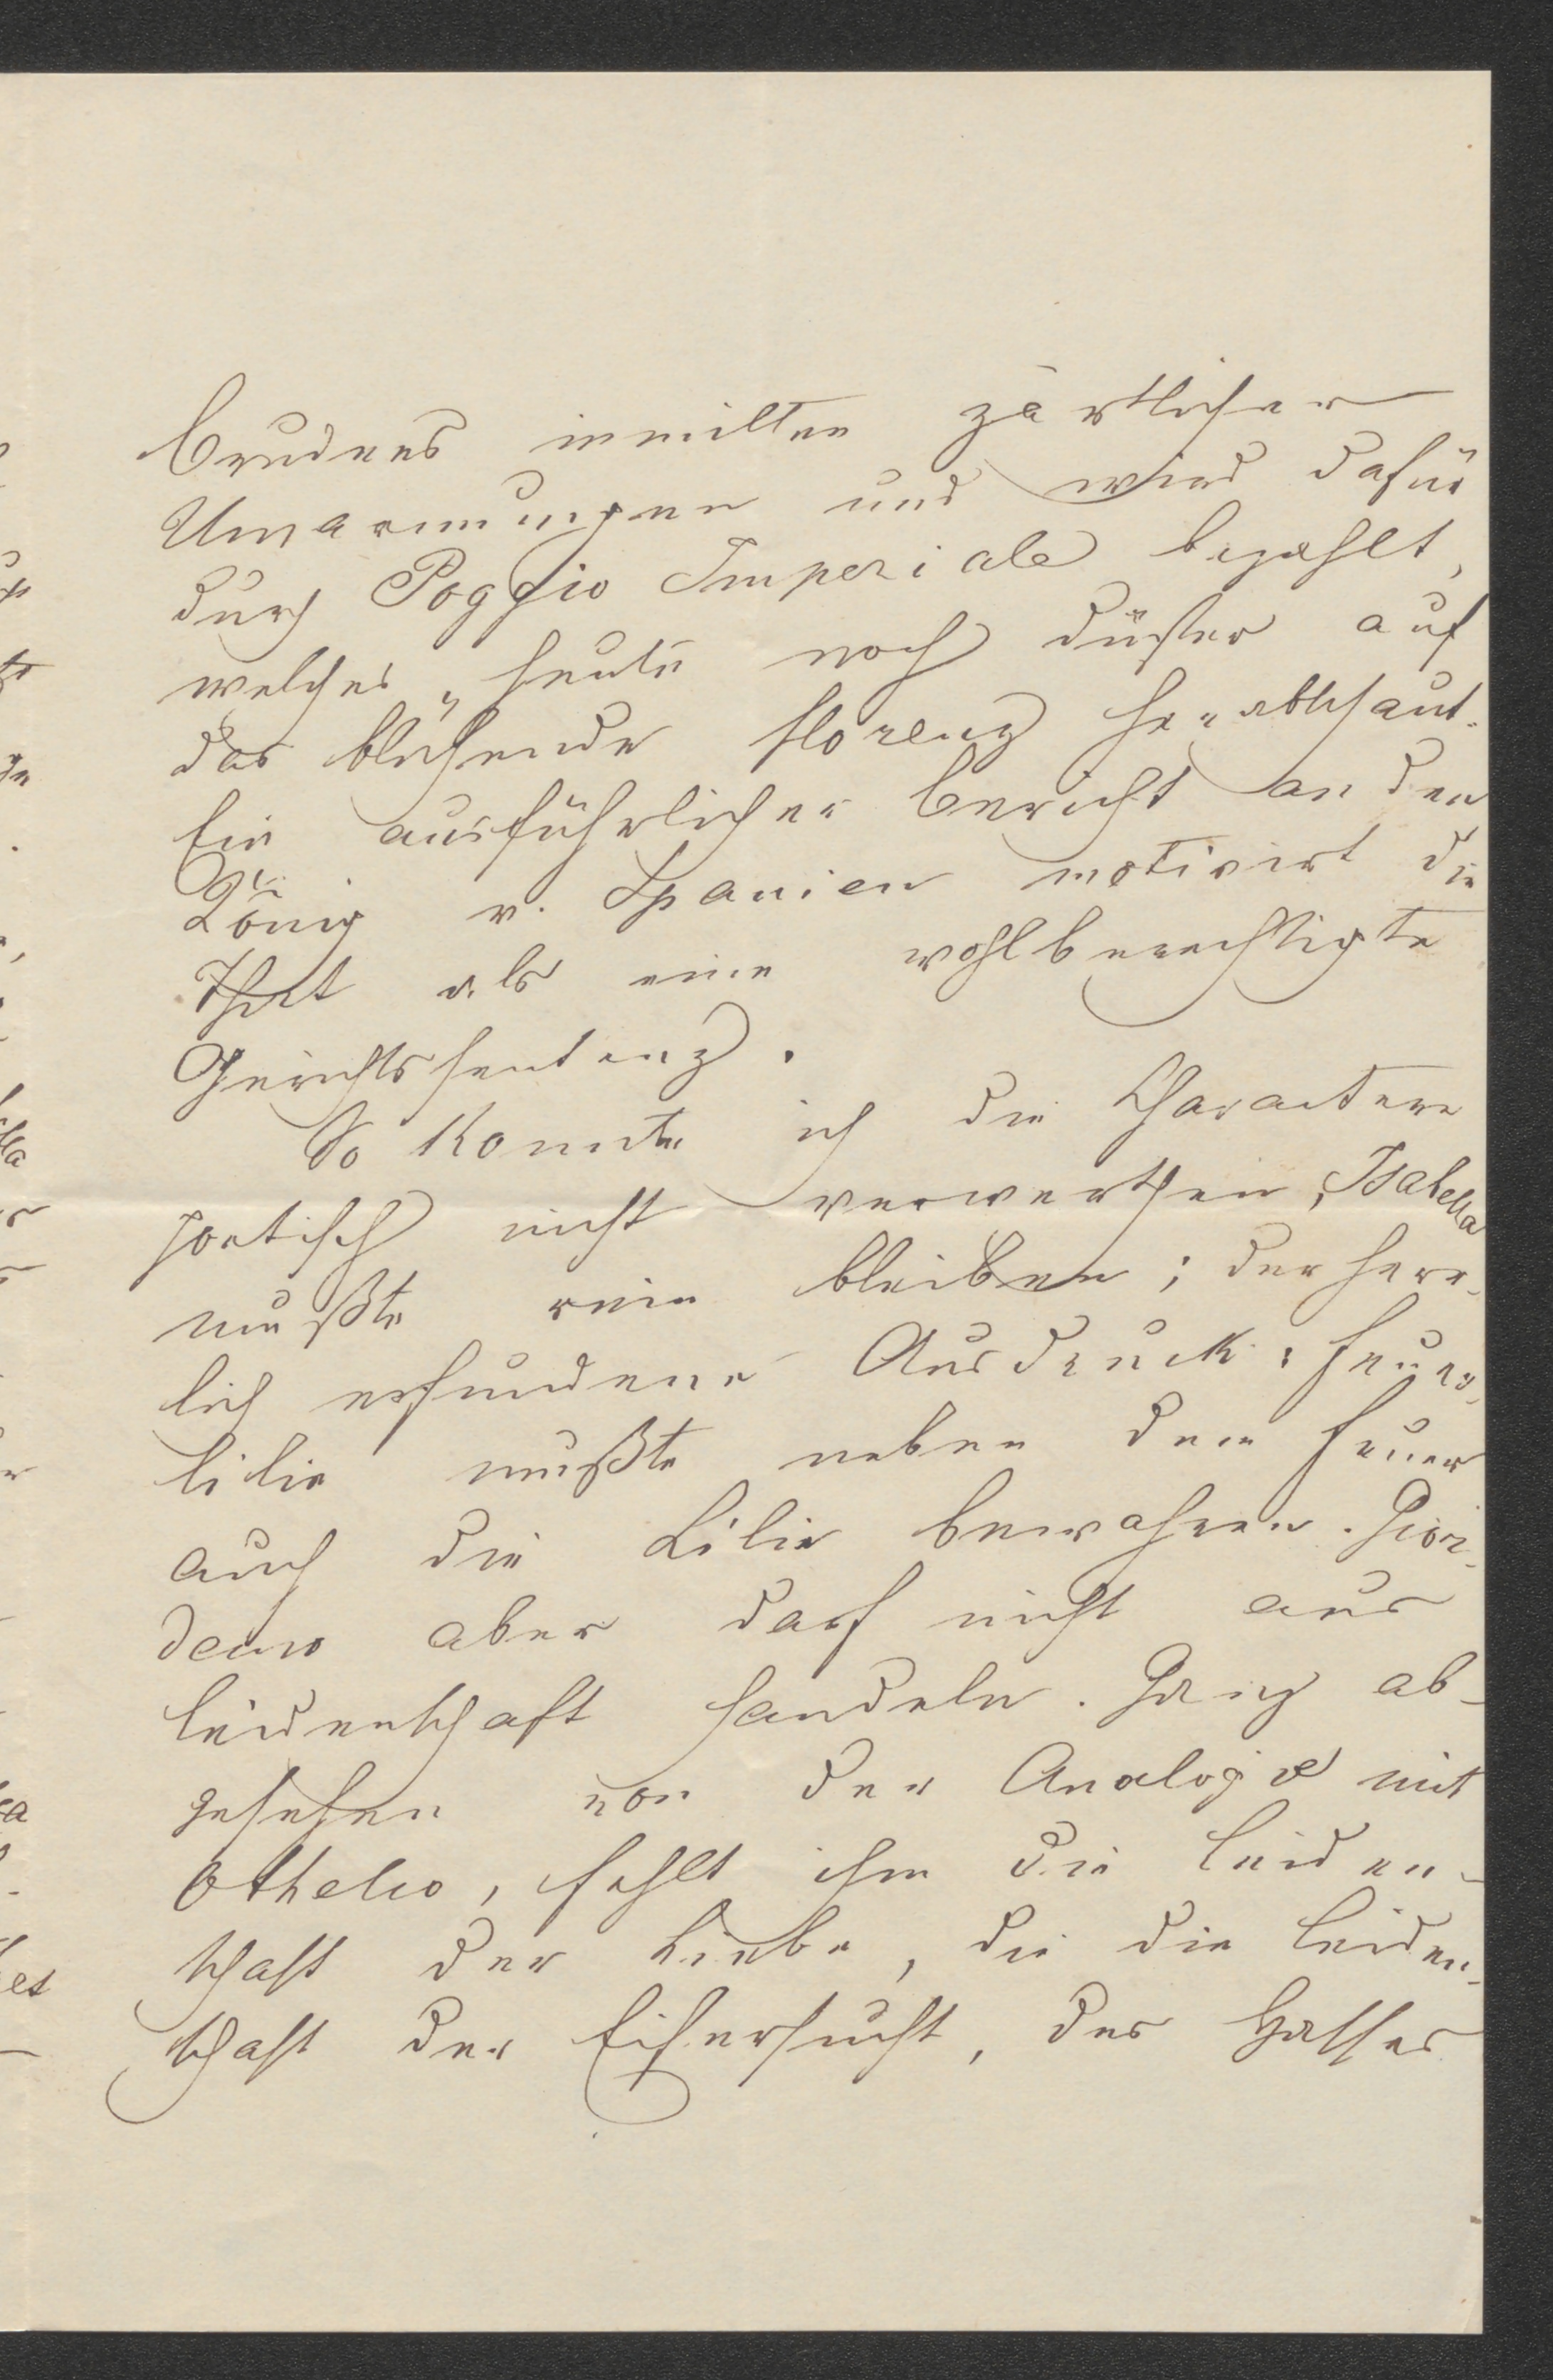 Bruders inmitten zärtlicher
Umarmungen und wird dafür
durch Poggio Imperiale bezahlt,
welches „heute noch düster auf
das blühende Florenz herabschaut.
Ein ausführlicher Bericht an den
König v. Spanien motivirt die
That als eine wohlberechtigte
Gerichtssentenz.
So konnte ich die Charactere
poetisch nicht verwerthen, Isabella
mußte rein bleiben; der herr-
lich erfundene Ausdruck: Feuer-
lilie mußte neben dem Feuer
auch die Lilie bewahren. Gior-
dano aber darf nicht aus
Leidenschaft handeln. Ganz ab-
gesehen von der Analogie mit
Othello, fehlt ihm die Leiden-
schaft der Liebe, die die Leiden-
schaft der Eifersucht, des Hasses